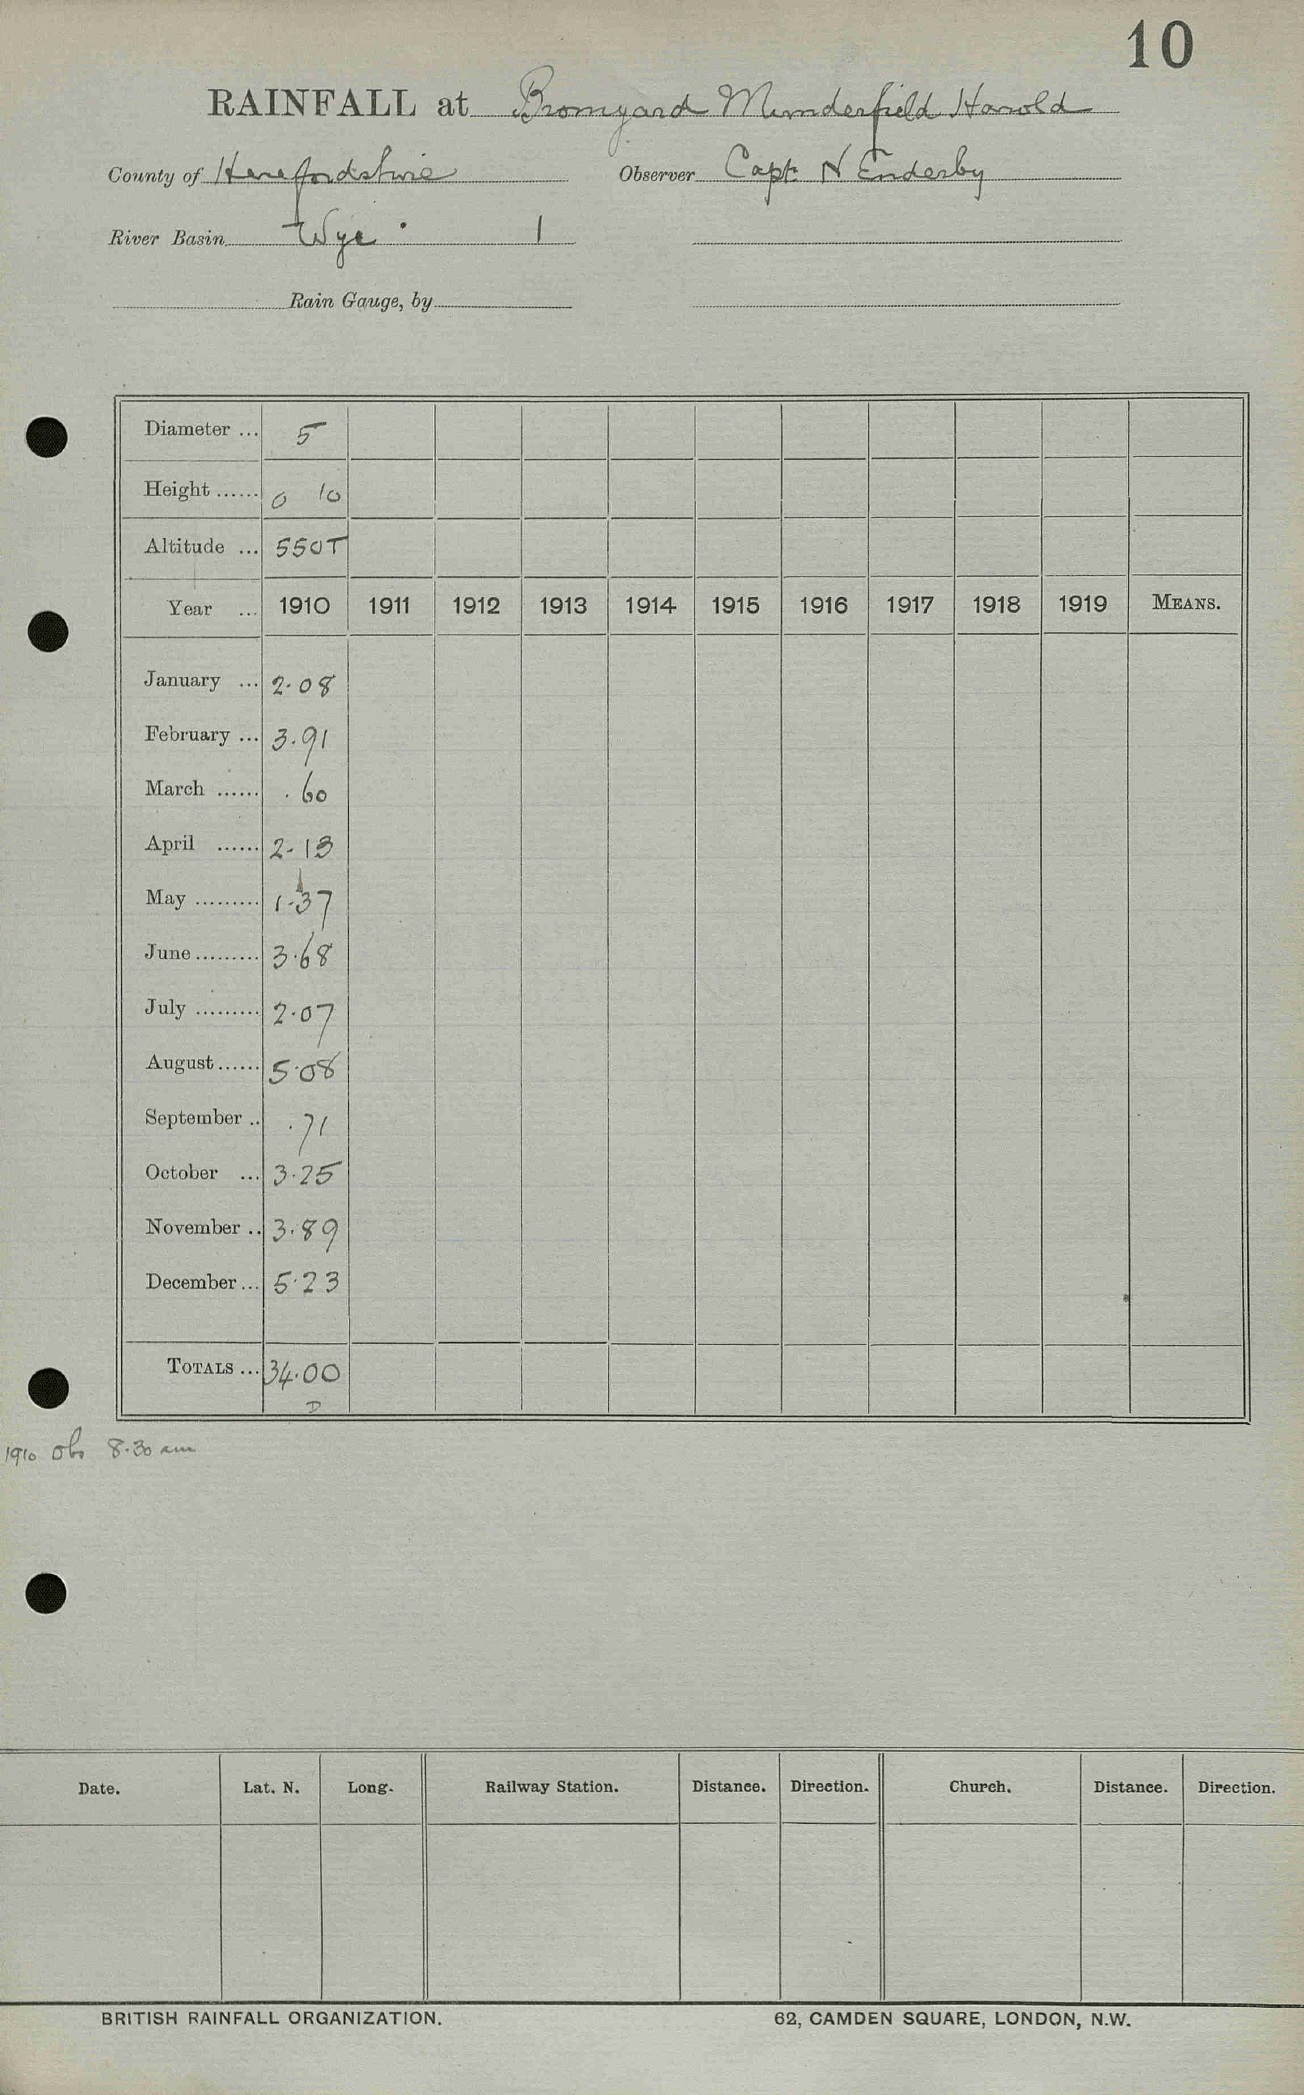 10
RAINFALL at Bromyard Munderfield Harold
County of Herefordshire Observer Capt. N Enderby
River Basin Wye 1
Rain Gauge, by
Diameter ... 5
Height ...... 0 10
Altitude ... 550T
Year ... 1910 1911 1912 1913 1914 1915 1916 1917 1918 1919 MEANS.
January ... 2.08
February ... 3.91
March ...... .60
April ...... 2.13
May ......... 1.37
June ......... 3.68
July ......... 2.07
August ...... 5.08
September .. .71
October ... 3.25
November .. 3.89
December ... 5.23
TOTALS ... 34.00
D
1910 obs 8.30 am
Date. Lat. N. Long. Railway Station. Distance. Direction. Church. Distance. Direction.
BRITISH RAINFALL ORGANIZATION. 62, CAMDEN SQUARE, LONDON, N.W.